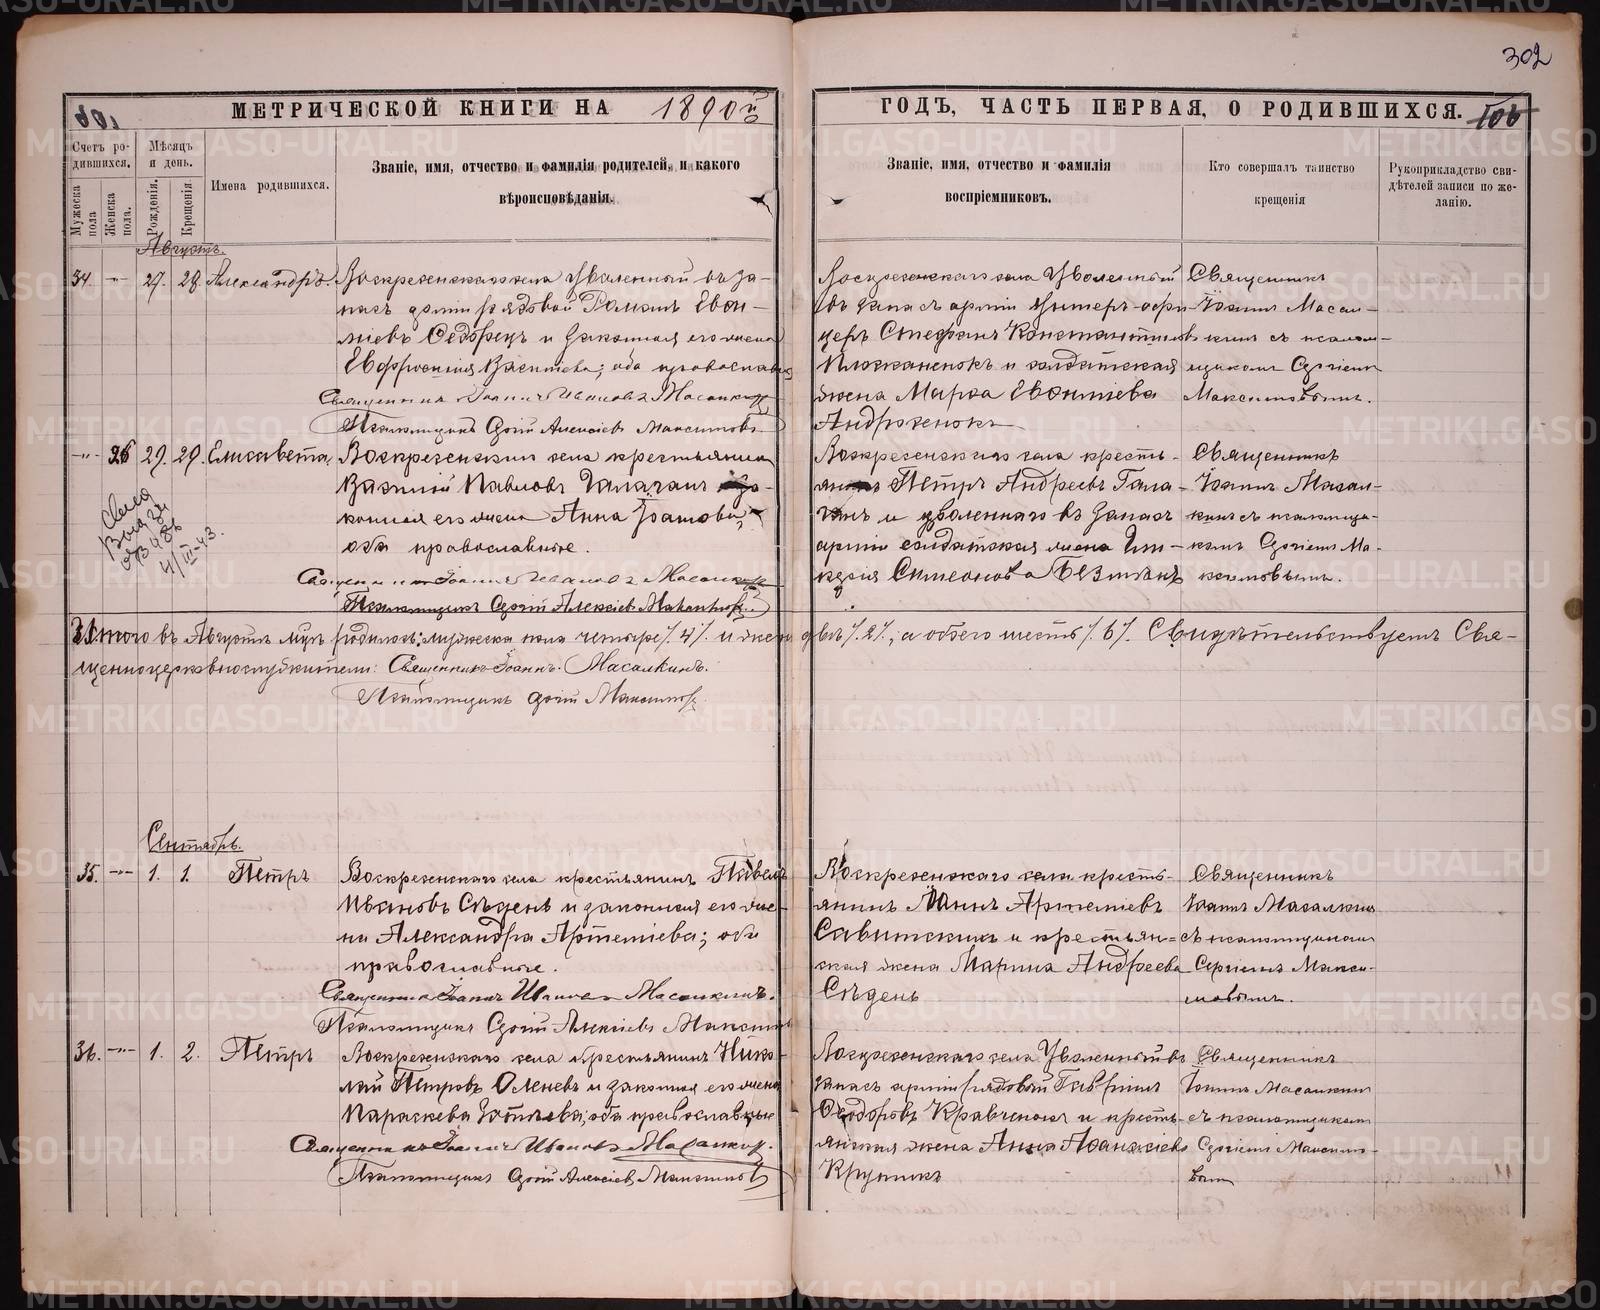 302
МЕТРИЧЕСКОЙ КНИГИ НА 1890й
ГОДЪ, ЧАСТЬ ПЕРВАЯ, О РОДИВШИХСЯ. 106
Счетъ родившихся.
Мужеска пола
Женска пола.
Мѣсяцъ и день.
Рожденія.
Крещенія
Имена родившихся.
Званіе, имя, отчество и фамилія родителей, и какого
вѣроисповѣданія.
Званіе, имя, отчество и фамилія
воспріемниковъ.
Кто совершалъ таинство
крещенія
Рукоприкладство сви-
дѣтелей записи по же-
ланію.
Августъ.
34. 27. 28. Александръ.
Воскресенскаго села уволенный въ за-
пасъ арміи рядовой Романъ Евон-
тіевъ и законная его жена
Евфросинія Василіева; оба православн
Священникъ Іоаннъ Ивановъ Масалкинъ
Псаломщикъ Сергій Алексіевъ Максимовъ
Воскресенскаго села уволенный
въ запасъ арміи унтеръ-офи-
церъ Стефанъ Константиновъ
и солдатская
жена Марѳа Евонтіева
Андрюсенокъ
Священникъ
Іоаннъ Масал-
кинъ съ псалом-
щикомъ Сергіемъ
Максимовымъ.
26 29. 29. Елисавета.
Воскресенскаго села крестьянинъ
Василій Павловъ Галаганъ за-
конная его жена Анна
оба православные.
Священникъ Іоаннъ Ивановъ Масалкинъ
Псаломщикъ Сергій Алексіевъ Максимовъ
Воскресенскаго села кресть-
янинъ Петръ Андреевъ Гала-
ганъ и уволеннаго въ запасъ
арміи солдатская жена Гли-
керія Симеонова
Священникъ
Іоаннъ Масал-
кинъ съ псаломщи-
комъ Сергіемъ Ма-
ксимовымъ.
4/III-43.
Итого въ Августѣ мцѣ родилось: мужеска пола четыре /.4/. и женска двѣ /.2/., а обоего шесть /.6/. Свидѣтельствуетъ Свя-
щенноцерковнослужители: Священникъ Іоаннъ Масалкинъ.
Псаломщикъ Сергій Максимовъ
Сентябрь.
35. 1. 1. Петръ
Воскресенскаго села крестьянинъ Павелъ
Ивановъ Сѣдень и законная его же-
на Александра Артеміева; оба
православные.
Священникъ Іоаннъ Ивановъ Масалкинъ.
Псаломщикъ Сергій Алексіевъ Максимовъ
Воскресенскаго села кресть-
янинъ Іоаннъ Артеміевъ
Савитскихъ и крестьян-
ская жена Марина Андреева
Сѣдень
Священникъ
Іоаннъ Масалкинъ
съ псаломщикомъ
Сергіемъ Макси-
мовымъ.
36. 1. 2. Петръ
Воскресенскаго села крестьянинъ Нико-
лай Петровъ Оленевъ и законная его жена
Параскева оба православные
Священникъ Іоаннъ Ивановъ Масалкинъ.
Псаломщикъ Сергій Алексіевъ Максимовъ
Воскресенскаго села уволенный въ
запасъ арміи рядовой Гавріилъ
Ѳеодоровъ Кравченокъ и кресть-
янская жена Анна Аѳанасіева
Крупникъ
Священникъ
Іоаннъ Масалкинъ
съ псаломщикомъ
Сергіемъ Максимо-
вымъ
METRIKI.GASO-URAL.RU